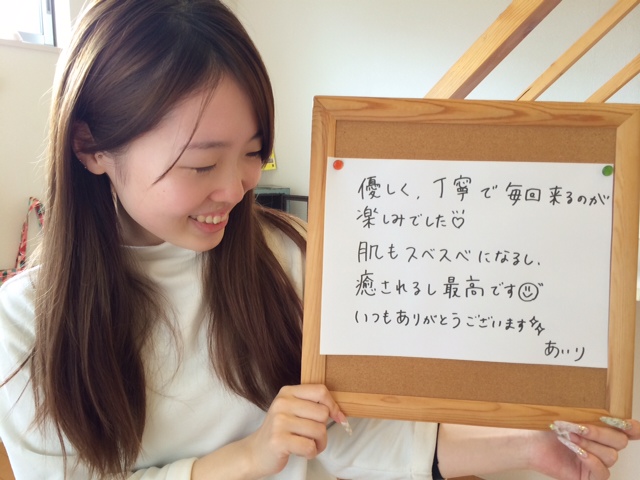 優しく、丁寧で毎回来るのが
楽しみでした♡
肌もスベスベになるし、
癒されるし最高です☺
いつもありがとうございます✨
あいり